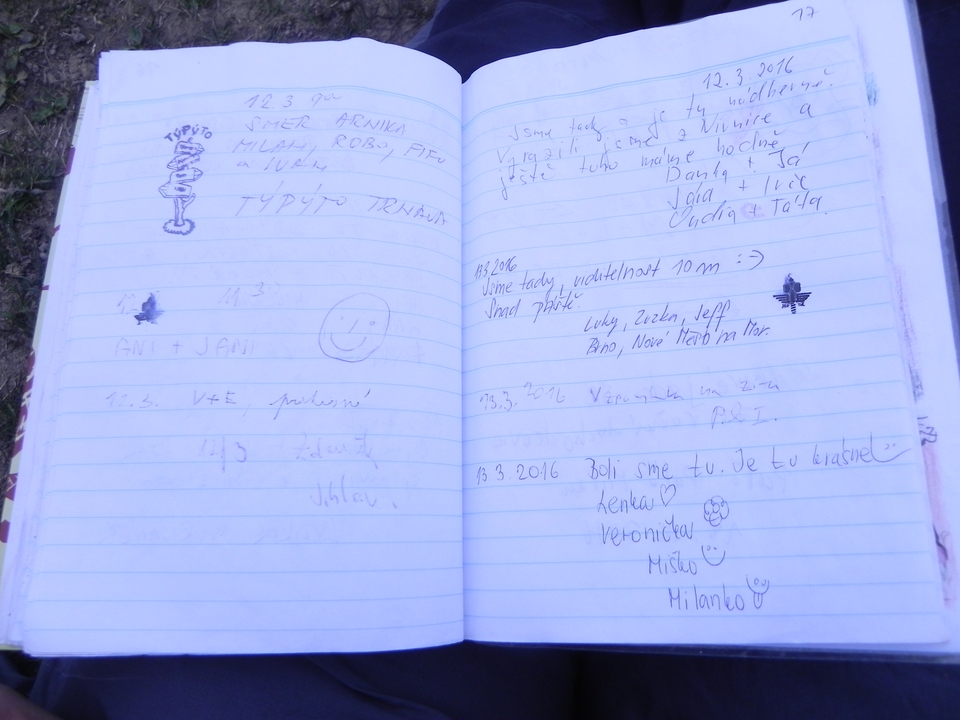 12.3
SMER ARNIKA
MILAN, ROBO, FIFO
a IVAN
TÝPÝTO TRNAVA
TÝPÝTO
11.3
ANI + JANI
12.3. V+E,
12/3
17
12.3.2016
Jsme tady a je tu nádherně.
Vyrazili jsme z Nivnice a
ještě toho máme hodně
Danka + Já
Jára + Ivča
Ondra + Táňa.
13.3.2016
Jsme tady, viditelnost 10m :-)
Snad příště.
Luky, Zuzka, Jeff
Brno, Nové Město na Mor.
13.3.2016 Vzpomínka na zimu
P & I.
13.3.2016 Boli sme tu. Je tu krásne
Lenka♡
Veronička
Miško
Milanko